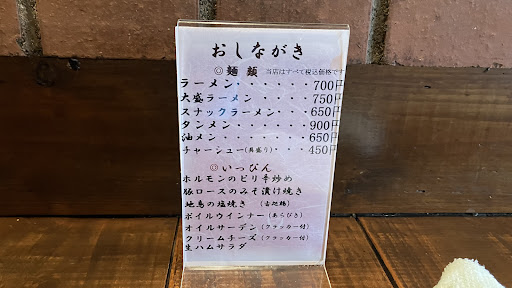 おしながき
◎麺類 当店はすべて税込価格です
ラーメン・・・・・・700円
大盛ラーメン・・・・750円
スナックラーメン・・・650円
タンメン・・・・・・900円
油メン・・・・・・・650円
チャーシュー(具盛り)・・・450円
◎いっぴん
ホルモンのピリ辛炒め
豚ロースのみそ漬け焼き
地鳥の塩焼き
ボイルウインナー(あらびき)
オイルサーデン(クラッカー付)
クリームチーズ(クラッカー付)
生ハムサラダ